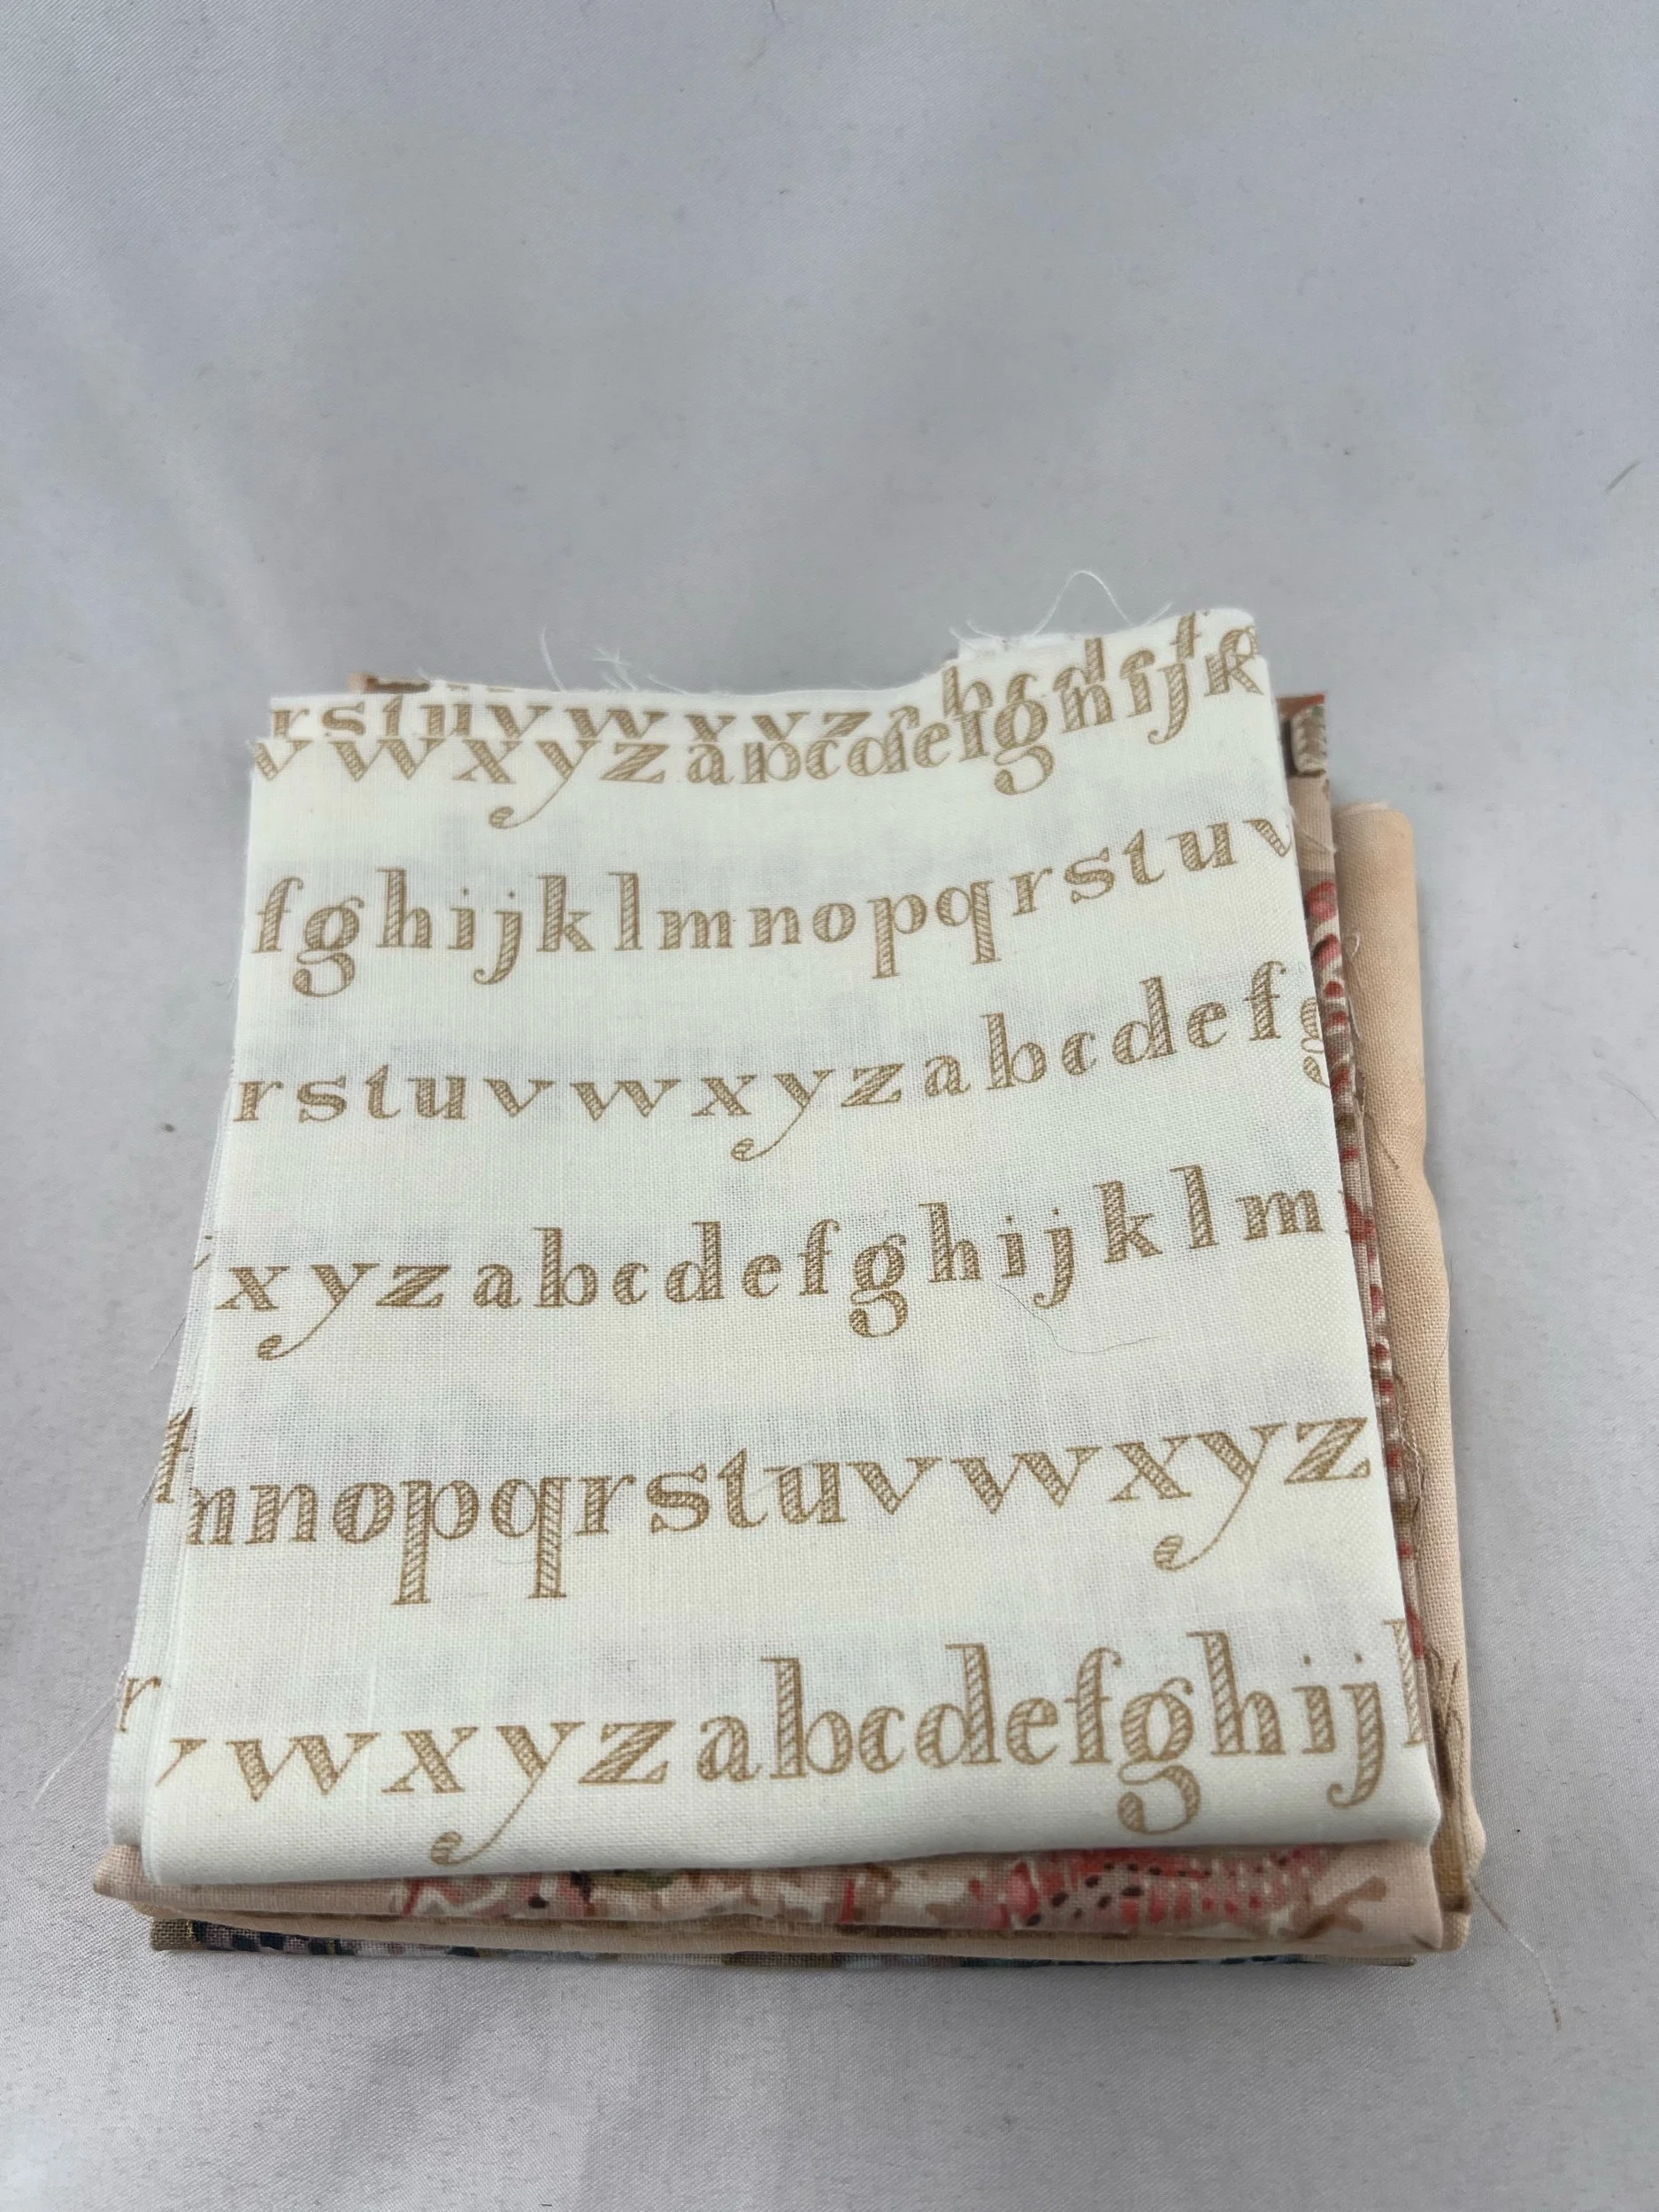 rstuvwxyzabcdefg
vwxyzabcdefghijk
fghijklmnopqrstuv
rstuvwxyzabcdefg
xyzabcdefghijklm
mnopqrstuvwxyz
vwxyzabcdefghijk